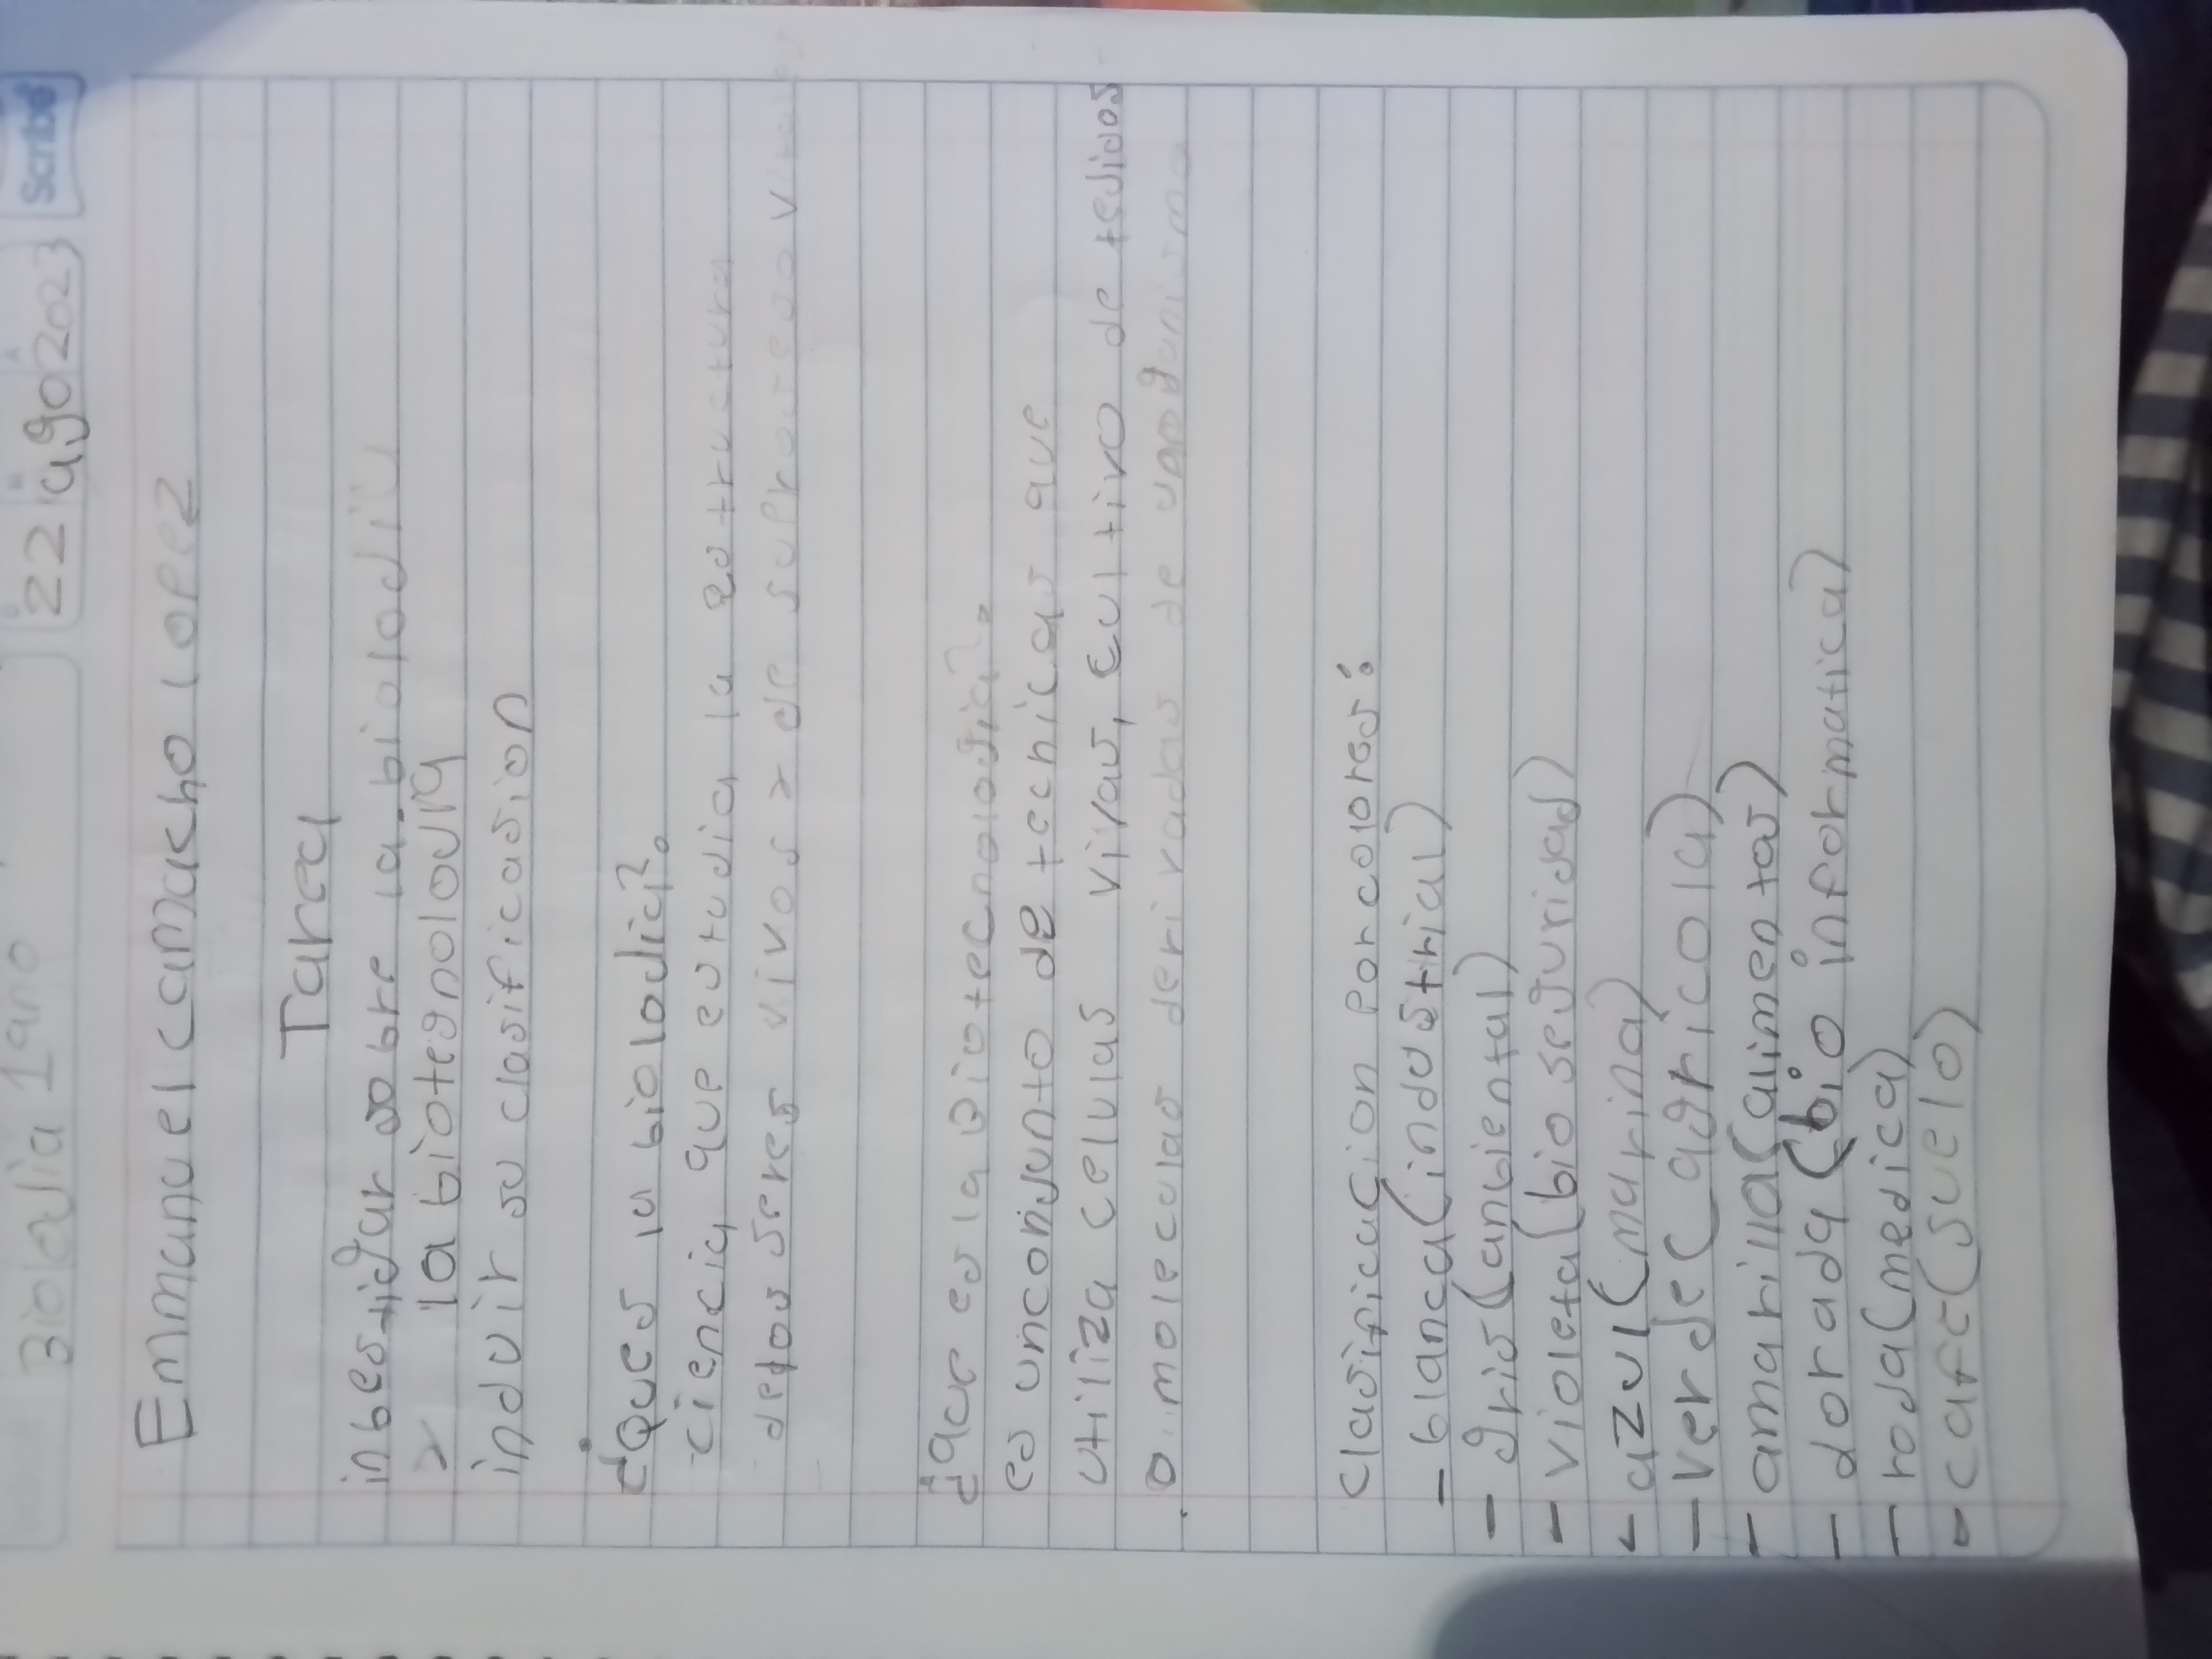 Biolojia 1ano
22 ago 2023
Scribe
Emmanuel camacho lopez
Tarea
inbestigar sobre la biolojia
y la biotegnolouia
induir su clasificasion
¿Ques la biolojia?
ciencia que estudia la estructura
delos seres vivos y de sus procesos vitales
¿que es la Biotecnologia?
es unconjunto de technicas que
utiliza celulas vivas, cultivo de tejidos
o moleculas derivadas de un organismo
clasificacion porcolores:
- blanca (industrial)
- gris (anbiental)
- violeta (bio seguridad)
- azul (marina)
- verde (agricola)
- amarilla (alimentas)
- dorada (bio informatica)
- roja (medica)
- cafe (suelo)